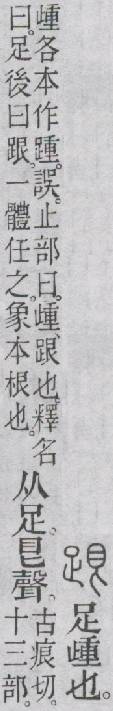 𨀈足𡺾也。
𡺾各本作踵。誤。止部曰。𡺾、跟也。釋名
曰。足後曰跟。一體任之。象本根也。
从足。㫐聲。
古痕切。
十三部。